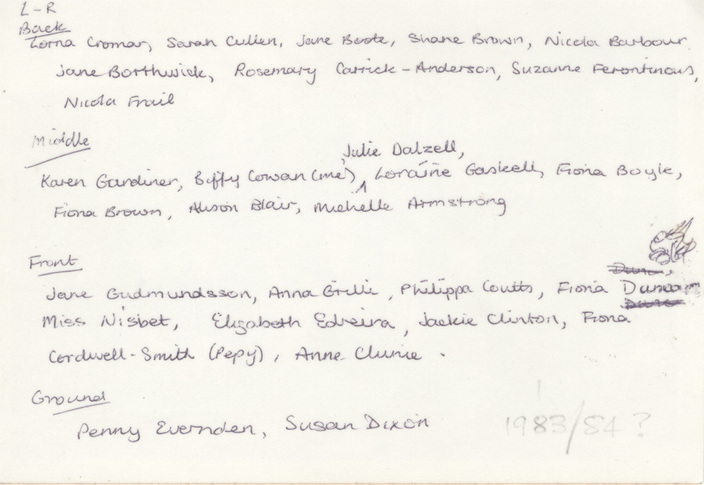 L-R
Back
Lorna Cromar, Sarah Cullen, Jane Beate, Shane Brown, Nicola Barbour
Jane Borthwick, Rosemary Carrick-Anderson, Suzanne Ferontinous,
Nicola Frail
Middle
Julie Dalzell,
Karen Gardiner, Biffy Cowan (me), Lorraine Gaskell, Fiona Boyle,
Fiona Brown, Alison Blair, Michelle Armstrong
Front
Jane Gudmundsson, Anna Grilli, Philippa Coutts, Fiona Duncan
Miss Nisbet, Elizabeth Edreira, Jackie Clinton, Fiona
Cordwell-Smith (Pepy), Anne Clunie.
Ground
Penny Evernden, Susan Dixon
1983/84?